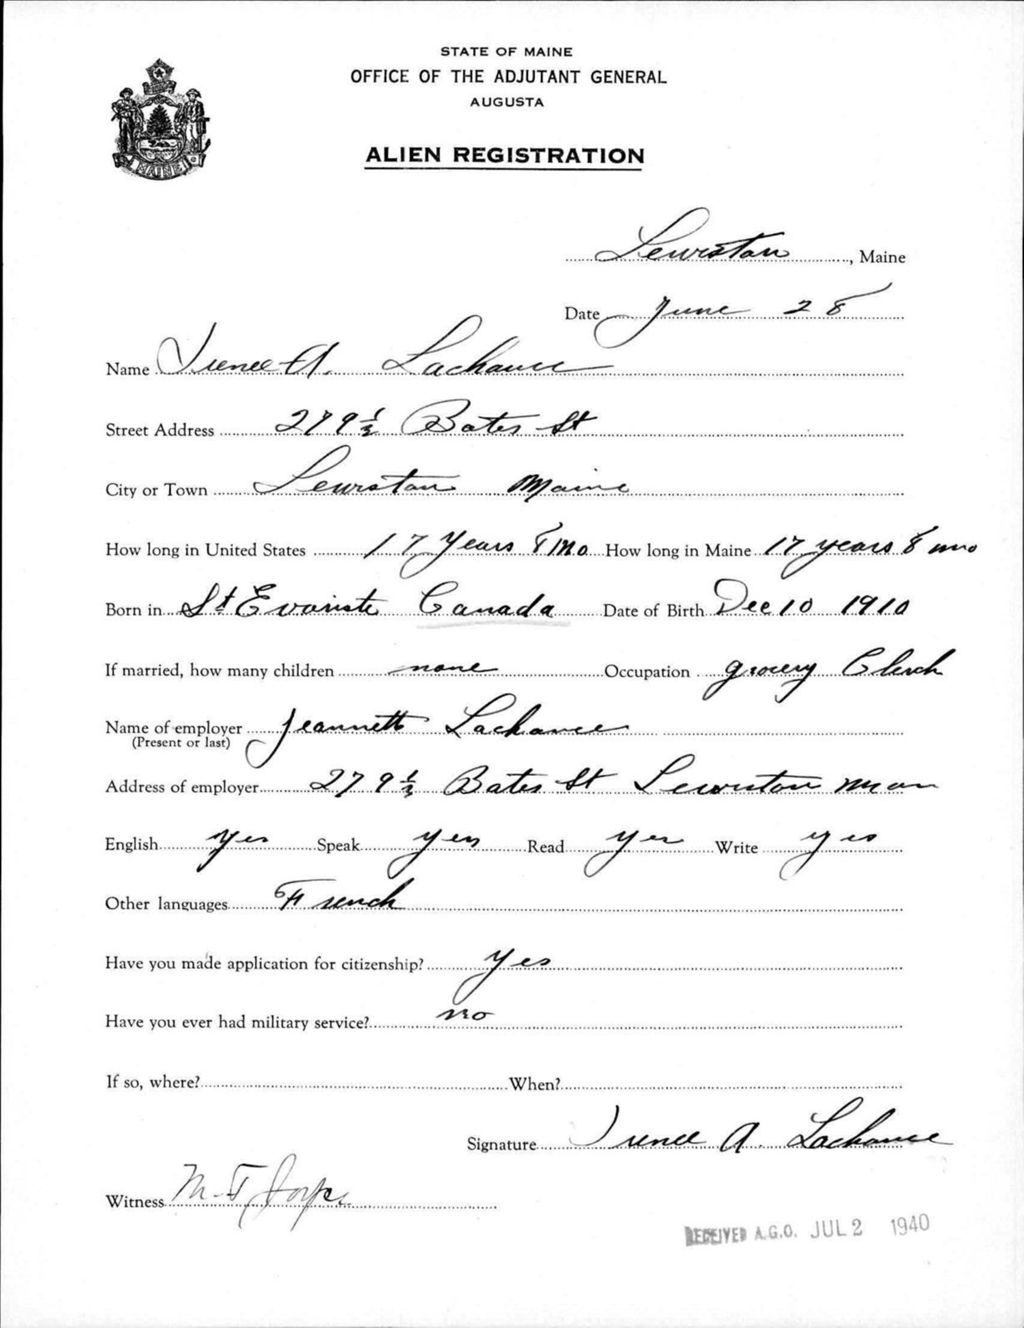 STATE OF MAINE
OFFICE OF THE ADJUTANT GENERAL
AUGUSTA
ALIEN REGISTRATION
MAINE
Lewiston, Maine
Date June 28
Name Irenee A. Lachance
Street Address 279½ Bates St
City or Town Lewiston Maine
How long in United States 17 Years 8 mo How long in Maine 17 years 8 mo
Born in St Evariste Canada Date of Birth Dec 10 1910
If married, how many children none Occupation grocery Clerk
Name of employer Jeannett Lachance
(Present or last)
Address of employer 279½ Bates St Lewiston
English yes Speak yes Read yes Write yes
Other languages French
Have you made application for citizenship? Yes
Have you ever had military service? no
If so, where? When?
Signature Irenee A. Lachance
Witness M-T
RECEIVED A.G.O. JUL 2 1940